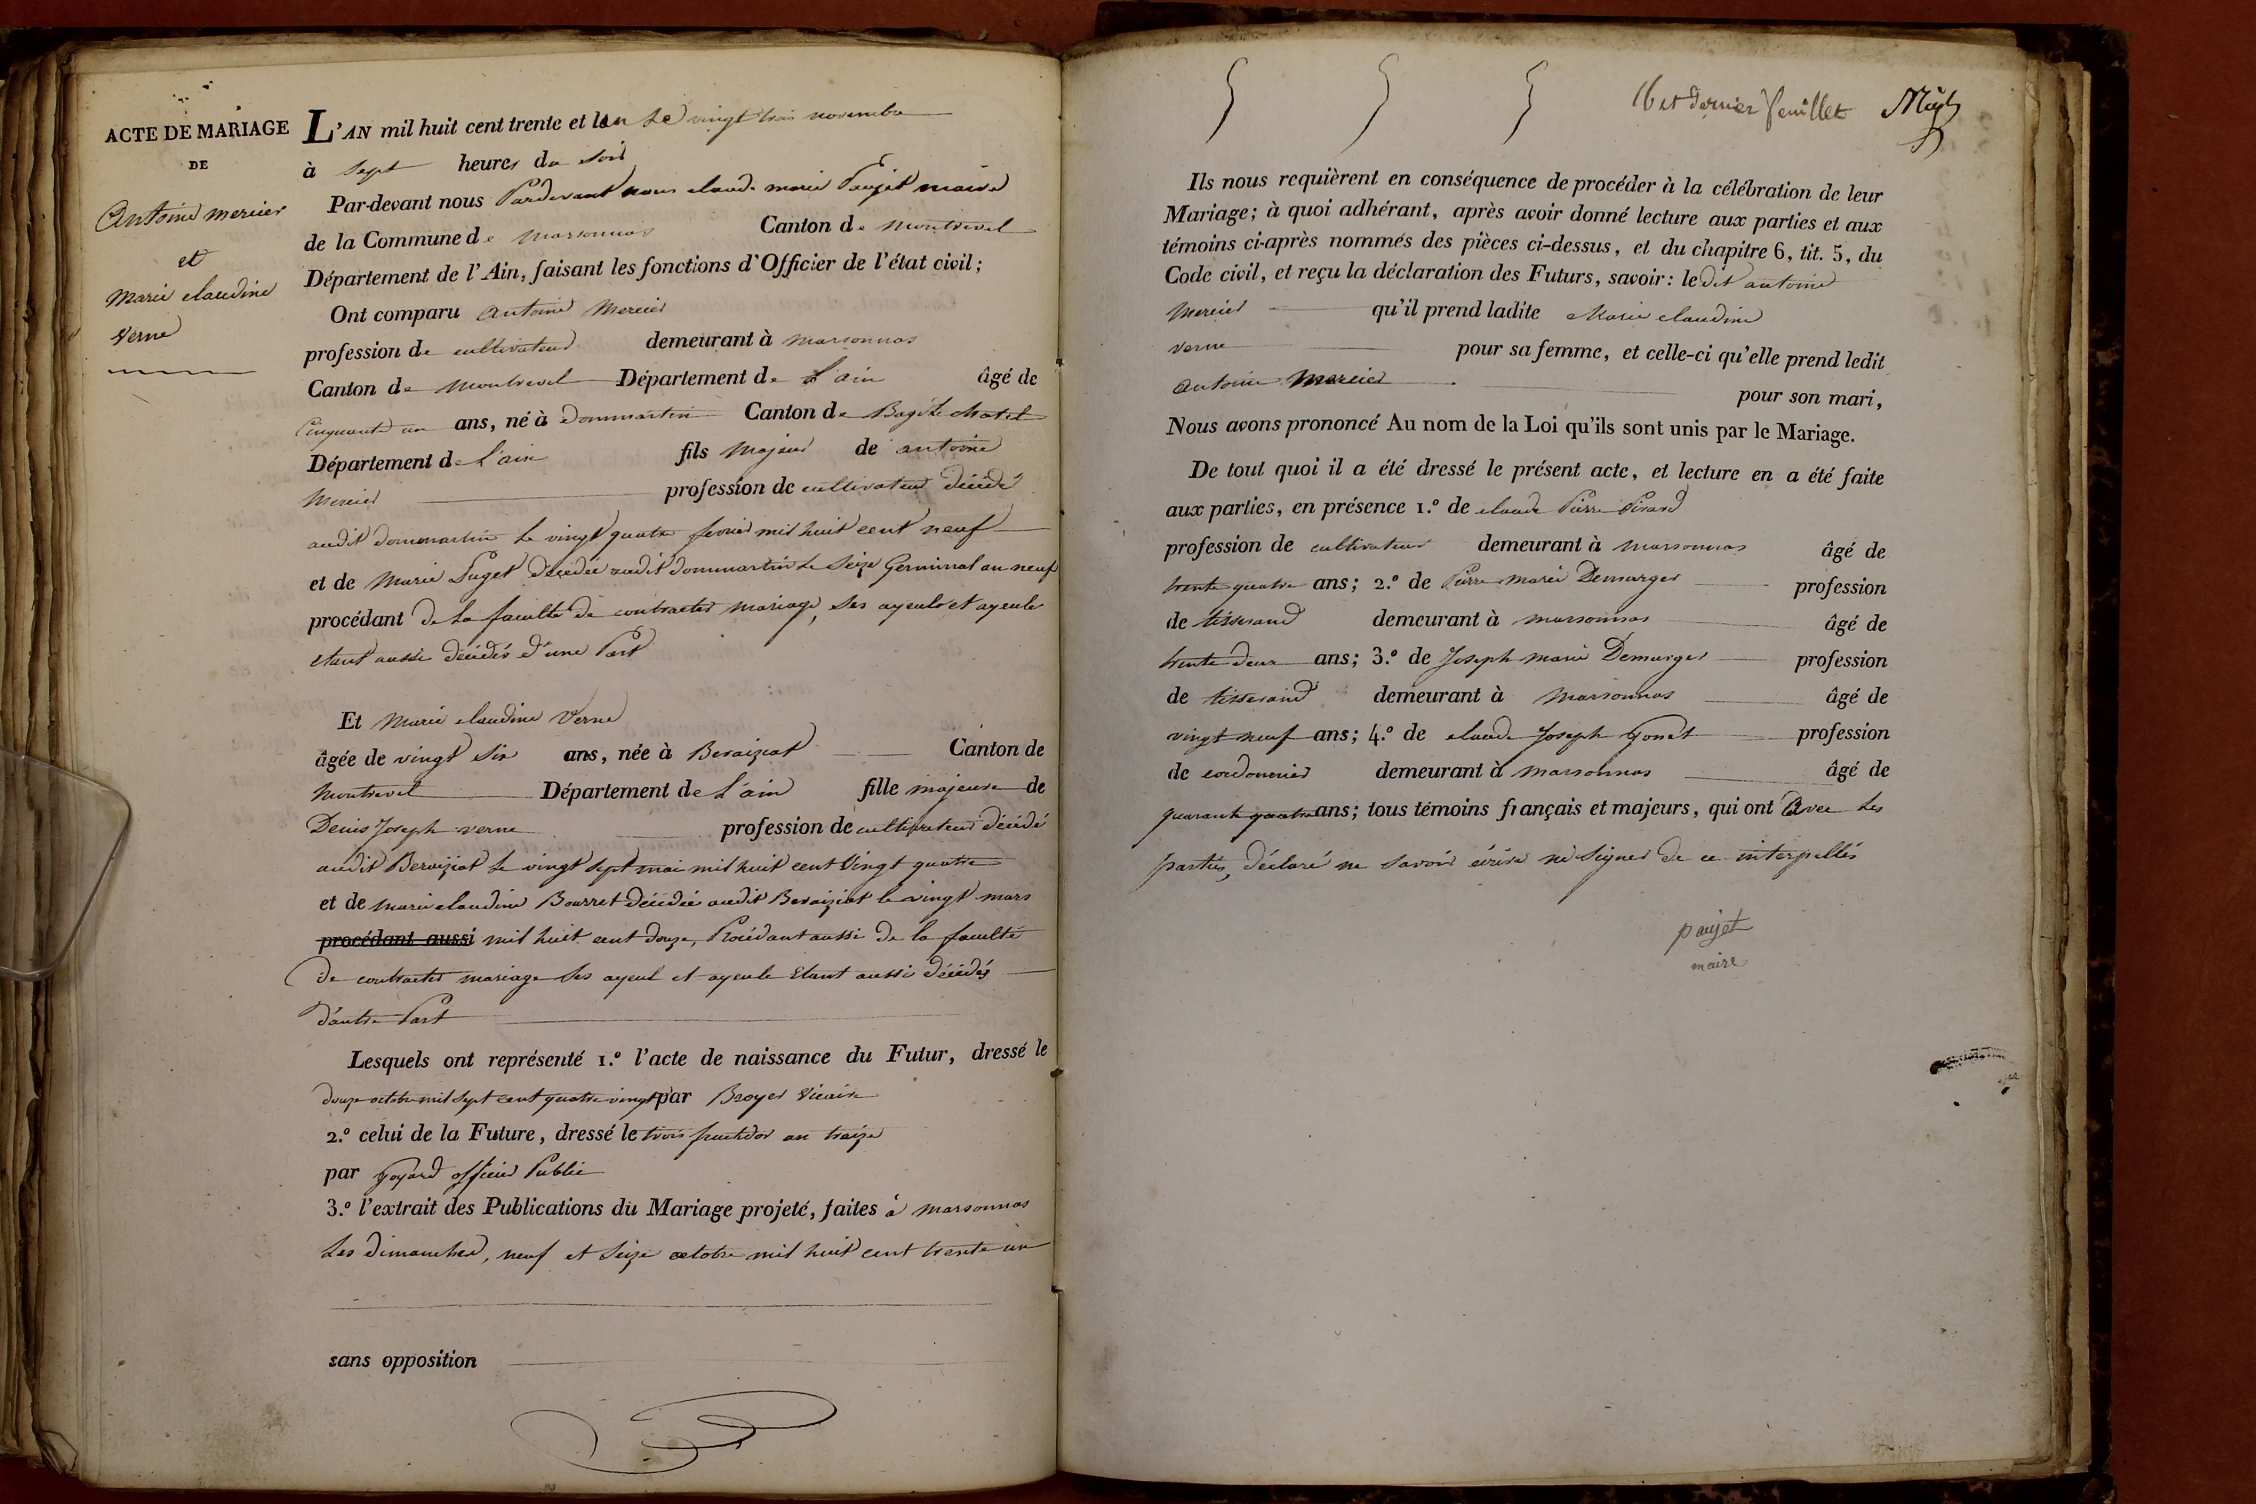 ACTE DE MARIAGE
DE
Antoine mercier
et
Marie claudine
Verne
L'AN mil huit cent trente et un Le vingt trois novembre
à sept heures du soir
Par-devant nous Pardevant nous claude marie Paujet maire
de la Commune de marsonnas Canton de montrevel
Département de l'Ain, faisant les fonctions d'Officier de l'état civil;
Ont comparu antoine Mercier
profession de cultivateur demeurant à marsonnas
Canton de montrevel Département de L'ain âgé de
Cinquante un ans, né à dommartin Canton de Bagé Le chatel
Département de L'ain fils majeur de antoine
Mercier profession de cultivateur décédé
audit dommartin Le vingt quatre fevrier mil huit cent neuf
et de Marie Puget décédée audit dommartin Le Seize Germinal an neuf
procédant de La faculté de contracter mariage, Ses ayeuls et ayeule
étant aussi décédés d'une Part
Et Marie claudine Verne
âgée de vingt Six ans, née à Beraiziat Canton de
Montrevel Département de L'ain fille majeure de
Denis Joseph verne profession de cultivateur décédé
audit Beraiziat Le vingt sept mai mil huit cent Vingt quatre
et de marie claudine Bourret décédée audit Beraiziat le vingt mars
procédant aussi mil huit cent douze, Procédant aussi de la faculté
de contracter mariage Ses ayeul et ayeule Etant aussi décédés
d'autre Part
Lesquels ont représenté 1.º l'acte de naissance du Futur, dressé le
douze octobre mil sept cent quatre vingt par Broyer Vicaire
2.º celui de la Future, dressé le trois fructidor an treize
par Goyard officier Public
3.º l'extrait des Publications du Mariage projeté, faites à marsonnas
Les dimanches, neuf et Seize octobre mil huit cent trente un
sans opposition
16 et dernier feuillet
Ils nous requièrent en conséquence de procéder à la célébration de leur
Mariage; à quoi adhérant, après avoir donné lecture aux parties et aux
témoins ci-après nommés des pièces ci-dessus, et du chapitre 6, tit. 5, du
Code civil, et reçu la déclaration des Futurs, savoir: le dit antoine
Mercier qu'il prend ladite Marie claudine
verne pour sa femme, et celle-ci qu'elle prend ledit
antoine Mercier pour son mari,
Nous avons prononcé Au nom de la Loi qu'ils sont unis par le Mariage.
De tout quoi il a été dressé le présent acte, et lecture en a été faite
aux parties, en présence 1.º de claude Pierre Pirard
profession de cultivateur demeurant à marsonnas âgé de
trente quatre ans; 2.º de Pierre marie Demurger profession
de tisserand demeurant à marsonnas âgé de
trente deux ans; 3.º de Joseph marie Demurger profession
de tisserand demeurant à marsonnas âgé de
vingt neuf ans; 4.º de claude Joseph Gonet profession
de cordonnier demeurant à marsonnas âgé de
quarante quatre ans; tous témoins français et majeurs, qui ont avec Les
parties, déclaré ne savoir écrire ni Signer de ce interpellés
paujet
maire